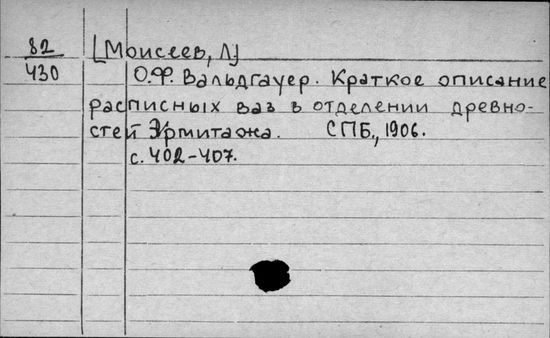 82
430
[Моисеев, Л]
О.Ф. Вальдгауер. Краткое описание
расписных ваз в отделении древно-
стей Эрмитажа. СПБ., 1906.
с. 402-407.